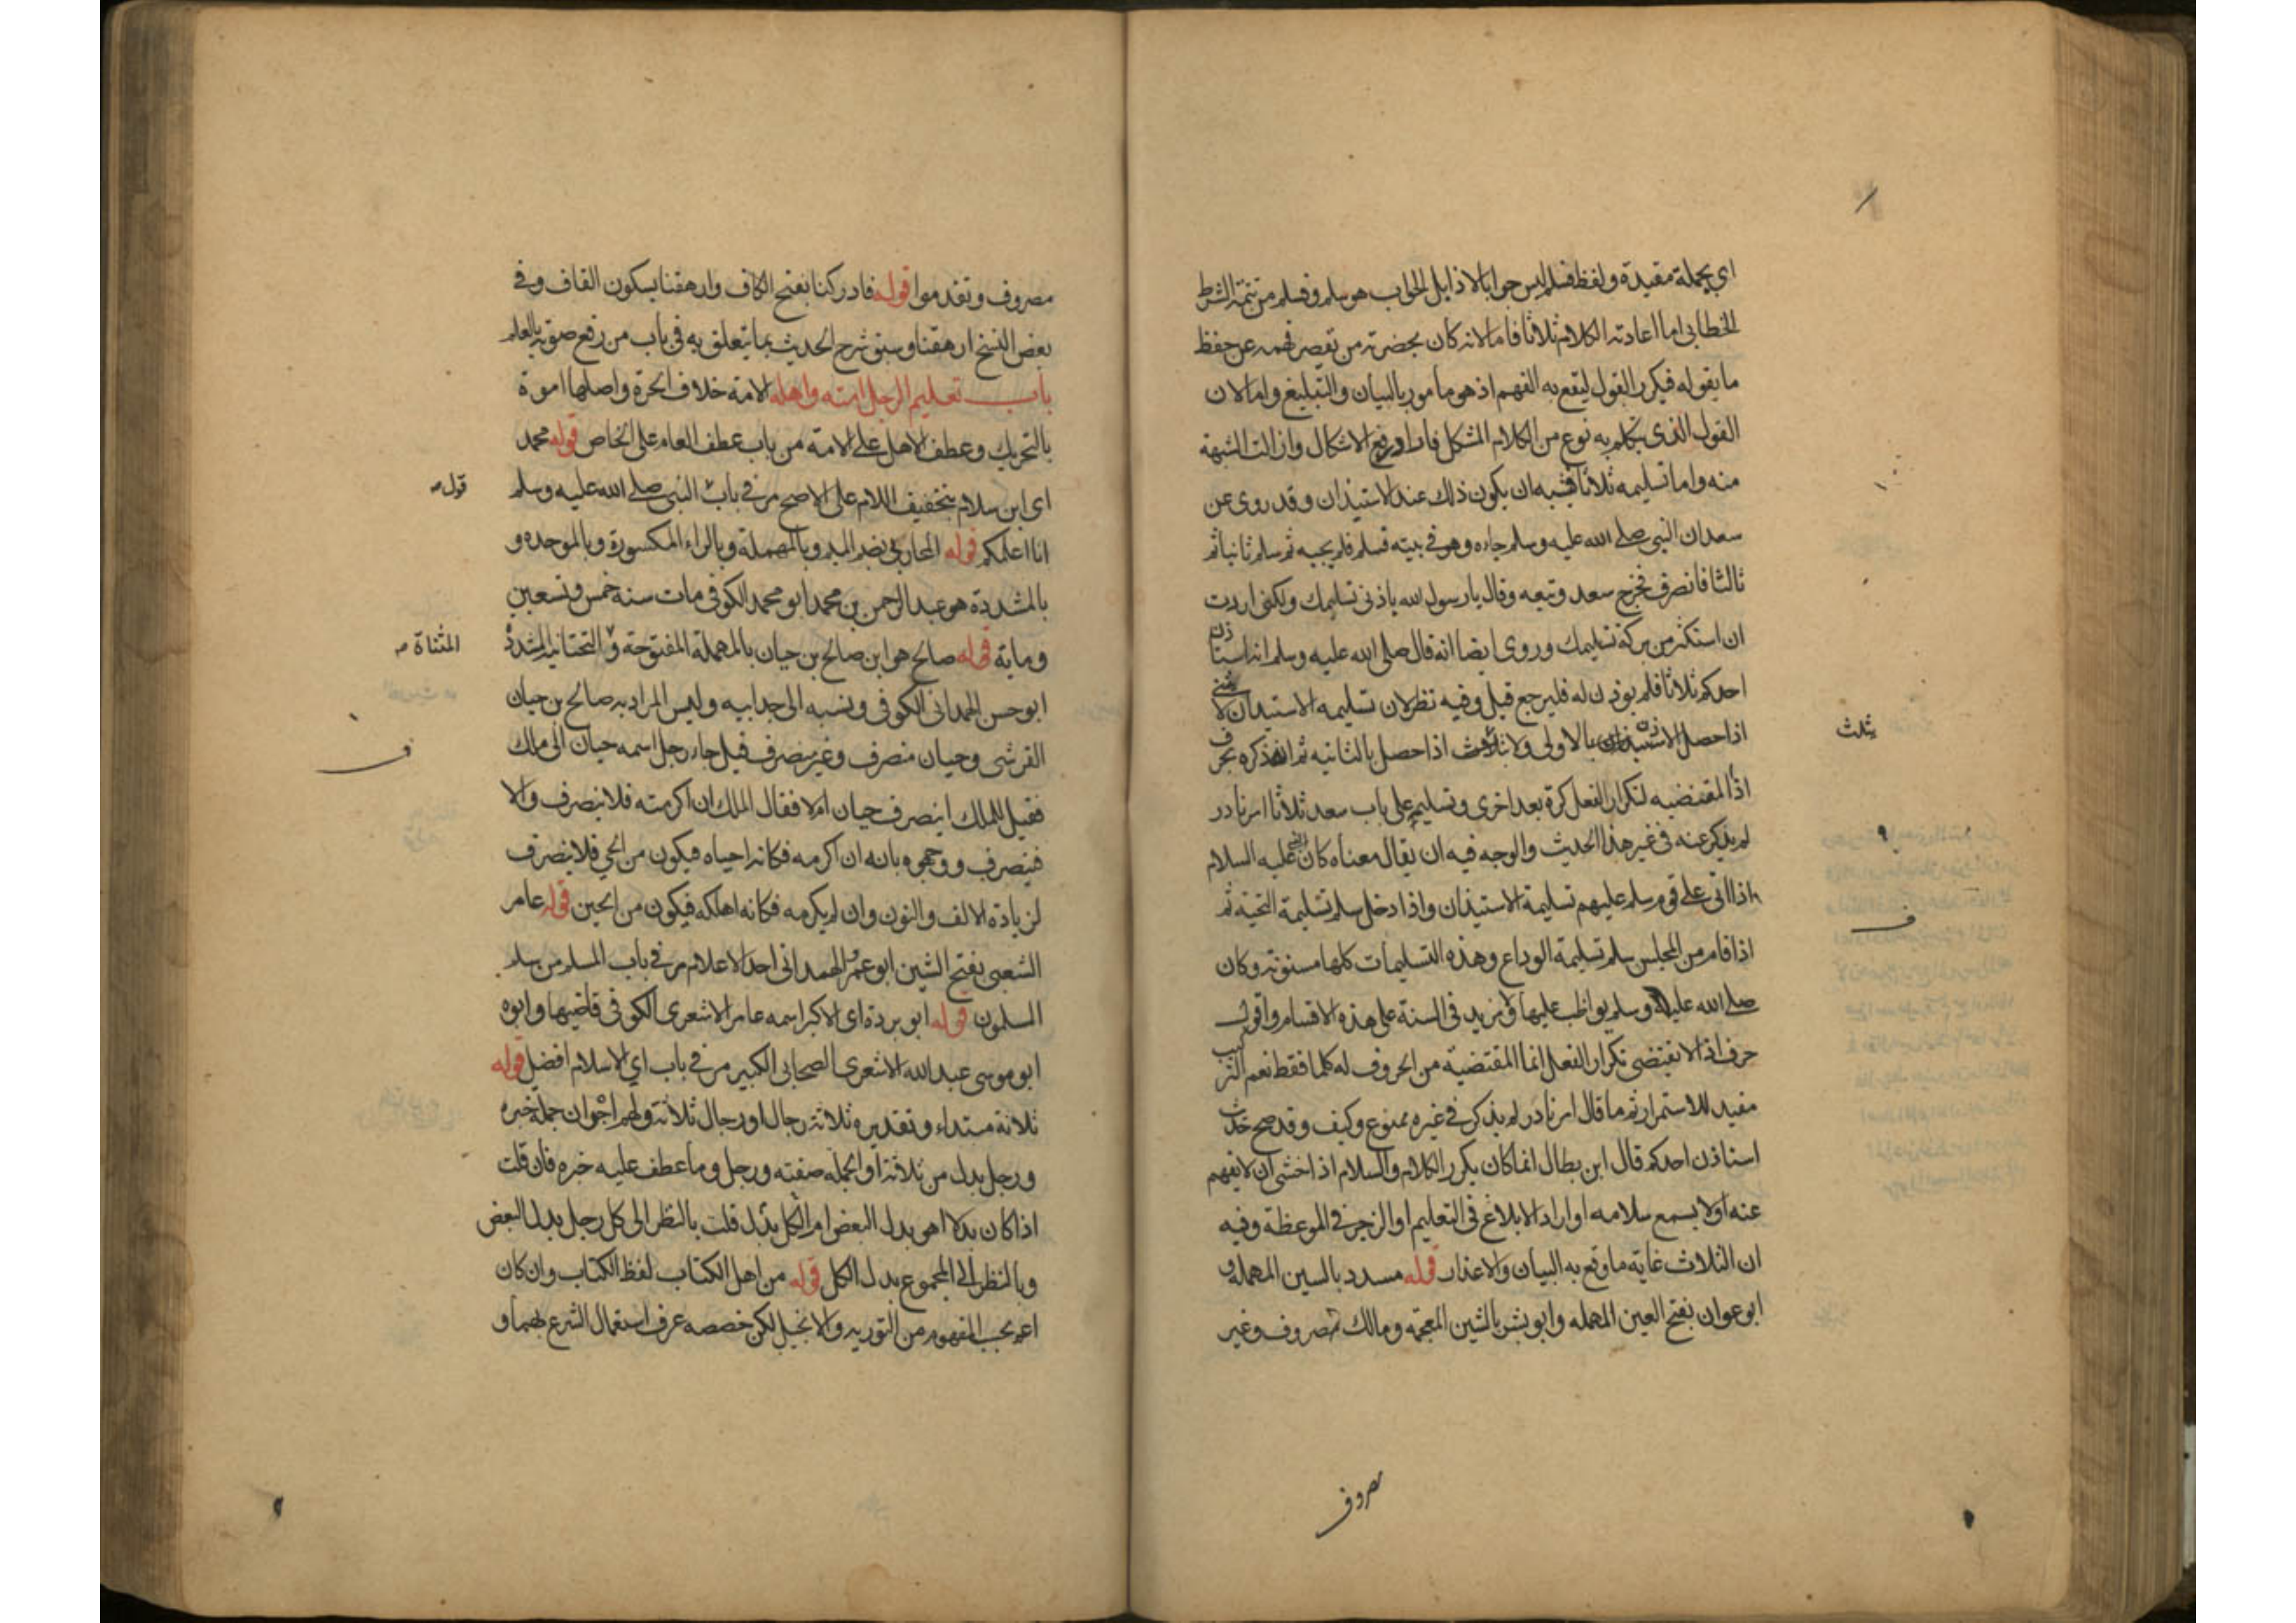 اي بجملة مفيدة ولفظ فسلم ليس جوابا لاذا بل الجواب هو سلم وفسلم من تتمة الشرط
الخطابي اما اعادته الكلام ثلاثا فاما لانه كان بحضرته من يقصر فهمه عن حفظ
ما يقوله فيكرر القول ليقع به الفهم اذ هو مأمور بالبيان والتبليغ واما لان
القول الذى يتكلم به نوع من الكلام المشكل فاراد رفع الاشكال وازالت الشبهة
منه واما تسليمه ثلاثا فيشبه ان يكون ذلك عند الاستيذان وقد روى عن
سعد ان النبى صلى الله عليه وسلم جاءه وهو فى بيته فسلم فلم يجبه ثم سلم ثانيا ثم
ثالثا فانصرف فخرج سعد وتبعه وقال يا رسول الله باذنى تسليمك ولكنى اردت
ان استكثر من بركة تسليمك وروى ايضا انه قال صلى الله عليه وسلم اذا استاذن
احدكم ثلاثا فلم يوذن له فليرجع قيل وفيه نظر لان تسليمه الاستيذان لا تثنى
اذا حصل الاستيذان بالاولى ولا تثلث اذا حصل بالثانيه ثم انه ذكره بحرف
يثلث
اذا المقتضيه لتكرار الفعل كرة بعد اخرى وتسليمه على باب سعد ثلاثا امر نادر
لم يذكر عنه فى غير هذا الحديث والوجه فيه ان يقال معناه كان النبى عليه السلام
اذا اتى على قوم سلم عليهم تسليمة الاستيذان واذا دخل سلم تسليمة التحية ثم
اذا قام من المجلس سلم تسليمة الوداع وهذه التسليمات كلها مسنونة وكان
صلى الله عليه وسلم يواظب عليها ولا مزيد فى السنة على هذه الاقسام واقول
حرف اذا لا يقتضى تكرار الفعل انما المقتضية من الحروف له كلما فقط نعم التركيب
مفيد للاستمرار ثم ما قال امر نادر لم يذكر فى غيره ممنوع وكيف وقد صح حديث
استاذن احدكم قال ابن بطال انما كان يكرر الكلام والسلام اذا خشى ان لا يفهم
عنه او لا يسمع سلامه او اراد الابلاغ فى التعليم او الزجر فى الموعظة وفيه
ان الثلاث غاية ما وقع به البيان والاعذار قوله مسدد بالسين المهملة و
ابو عوان بفتح العين المهمله وابو بشر بالشين المعجمة ومالك مصروف وغير
مصروف
مصروف وتقدموا قوله فادركنا بفتح الكاف وارهقنا بسكون القاف وفى
بعض النسخ ارهقتنا وسبق شرح الحديث بما يتعلق به فى باب من رفع صوته بالعلم
باب تعليم الرجل امته واهله الامة خلاف الحرة واصلها اموة
بالتحريك وعطف الاهل على الامة من باب عطف العام على الخاص قوله محمد
اى ابن سلام بتخفيف اللام على الاصح مر فى باب النبى صلى الله عليه وسلم
قول
انا اعلمكم قوله المحاربى بضم الميم وبالمهملة وبالراء المكسورة وبالموحده و
بالمشددة هو عبد الرحمن بن محمد ابو محمد الكوفى مات سنه خمس وتسعين
وماية قوله صالح هو ابن صالح بن حيان بالمهملة المفتوحة و التحتانيه المشددة
المثناة
ابو حسن الهمدانى الكوفى ونسبه الى جد ابيه وليس المراد به صالح بن حيان
القرشى وحيان منصرف وغير منصرف قيل جاء رجل اسمه حيان الى ملك
فقيل للملك اينصرف حيان ام لا فقال الملك ان اكرمته فلا ينصرف والا
فينصرف ووجهوه بانه ان اكرمه فكانه احياه فيكون من الحى فلا ينصرف
لزيادة الالف والنون وان لم يكرمه فكانه اهلكه فيكون من الحين قوله عامر
الشعبى بفتح الشين ابو عمرو الهمدانى احد الاعلام مر فى باب المسلم من سلم
المسلمون قوله ابو بردة اى الاكبر اسمه عامر الاشعرى الكوفى قاضيها وابوه
ابو موسى عبد الله الاشعرى الصحابى الكبير مر فى باب اي الاسلام افضل قوله
ثلاثة مبتداء وتقديره ثلاثة رجال او رجال ثلاثة ولهم اجران جملة خبره
ورجل بدل من ثلاثة او الجملة صفته ورجل وما عطف عليه خبره فان قلت
اذا كان بدلا اهو بدل البعض ام الكل بدل قلت بالنظر الى كل رجل بدل البعض
وبالنظر الى المجموع بدل الكل قوله من اهل الكتاب لفظ الكتاب وان كان
اعم بحسب المفهوم من التوريه والانجيل لكن خصصه عرف استعمال الشرع بهما و